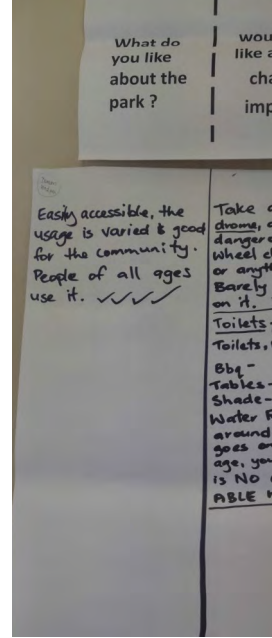 What do
you like
about the
park ?
wou
like a
cha
imp
Easily accessible, the
usage is varied & good
for the community.
People of all ages
use it. ✓✓✓✓
Take a
drome, a
dangero
wheel c
or anyth
Barely
on it.
Toilets-
Toilets,
Bbq -
Tables-
Shade-
Water
around
goes on
age, you
is NO
ABLE